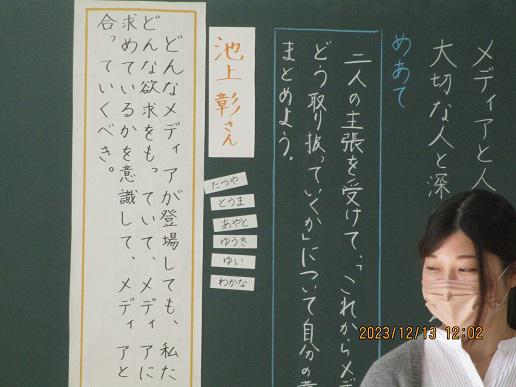 メディアと人
大切な人と深
めあて
二人の主張を受けて、「これからメデ
どう取り扱っていくか」について自分の考
まとめよう。
池上彰さん
たつや
とうま
あやと
ゆうき
ゆい
わかな
どんなメディアが登場しても、私た
どんな欲求をもっていて、メディアに
求めているかを意識して、メディアと
合っていくべき。
2023/12/13 12:02